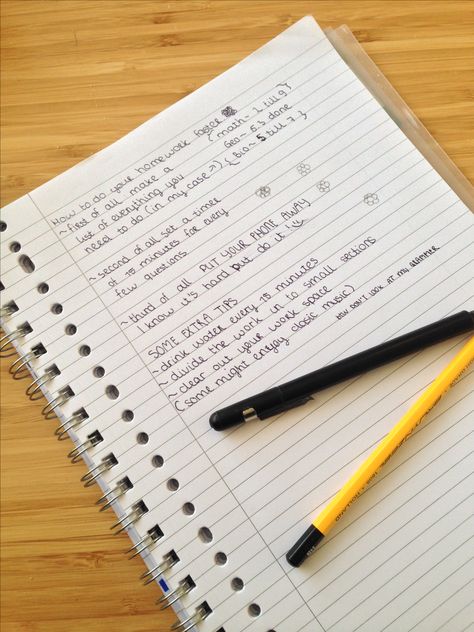 How to do your homework faster
~first of all make a { math~ 1 till 9 }
list of everything you Geo~ 5.5 done
need to do (in my case→) { Bio~ 5 till 7 }
~second of all set a timer
of 15 minutes for every
few questions
~third of all PUT YOUR PHONE AWAY
I know it's hard but do it
SOME EXTRA TIPS
~drink water every 15 minutes
~divide the work in to small sections
~clear out your work space
(some might enjoy clasic music)
DON'T LOOK AT MY GRAMMER